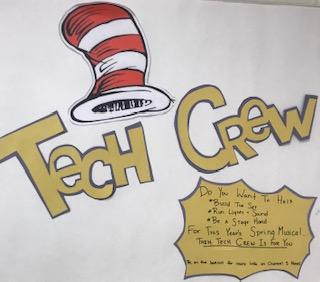 Tech Crew
Do You Want To Help
*Build The Set
*Run Lights + Sound
*Be A Stage Hand
For This Years Spring Musical...
Then Tech Crew Is For You
for more info on Channel 5 News